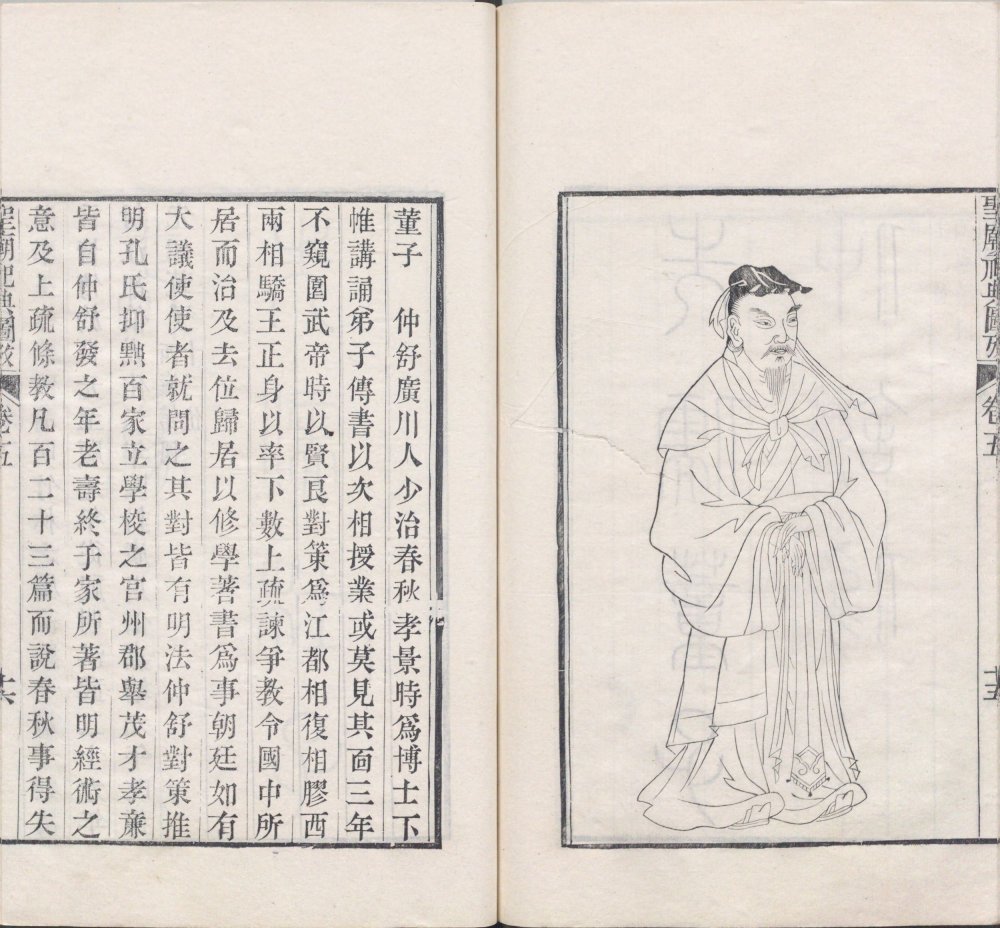 聖廟祀典圖攷
卷五
十五
董子　仲舒廣川人少治春秋孝景時爲博士下
帷講誦弟子傳書以次相授業或莫見其面三年
不窺園武帝時以賢良對策爲江都相復相膠西
兩相驕王正身以率下數上疏諫爭教令國中所
居而治及去位歸居以修學著書爲事朝廷如有
大議使使者就問之其對皆有明法仲舒對策推
明孔氏抑黜百家立學校之官州郡舉茂才孝亷
皆自仲舒發之年老壽終于家所著皆明經術之
意及上疏條教凡百二十三篇而說春秋事得失
聖廟祀典圖攷
卷五
十六